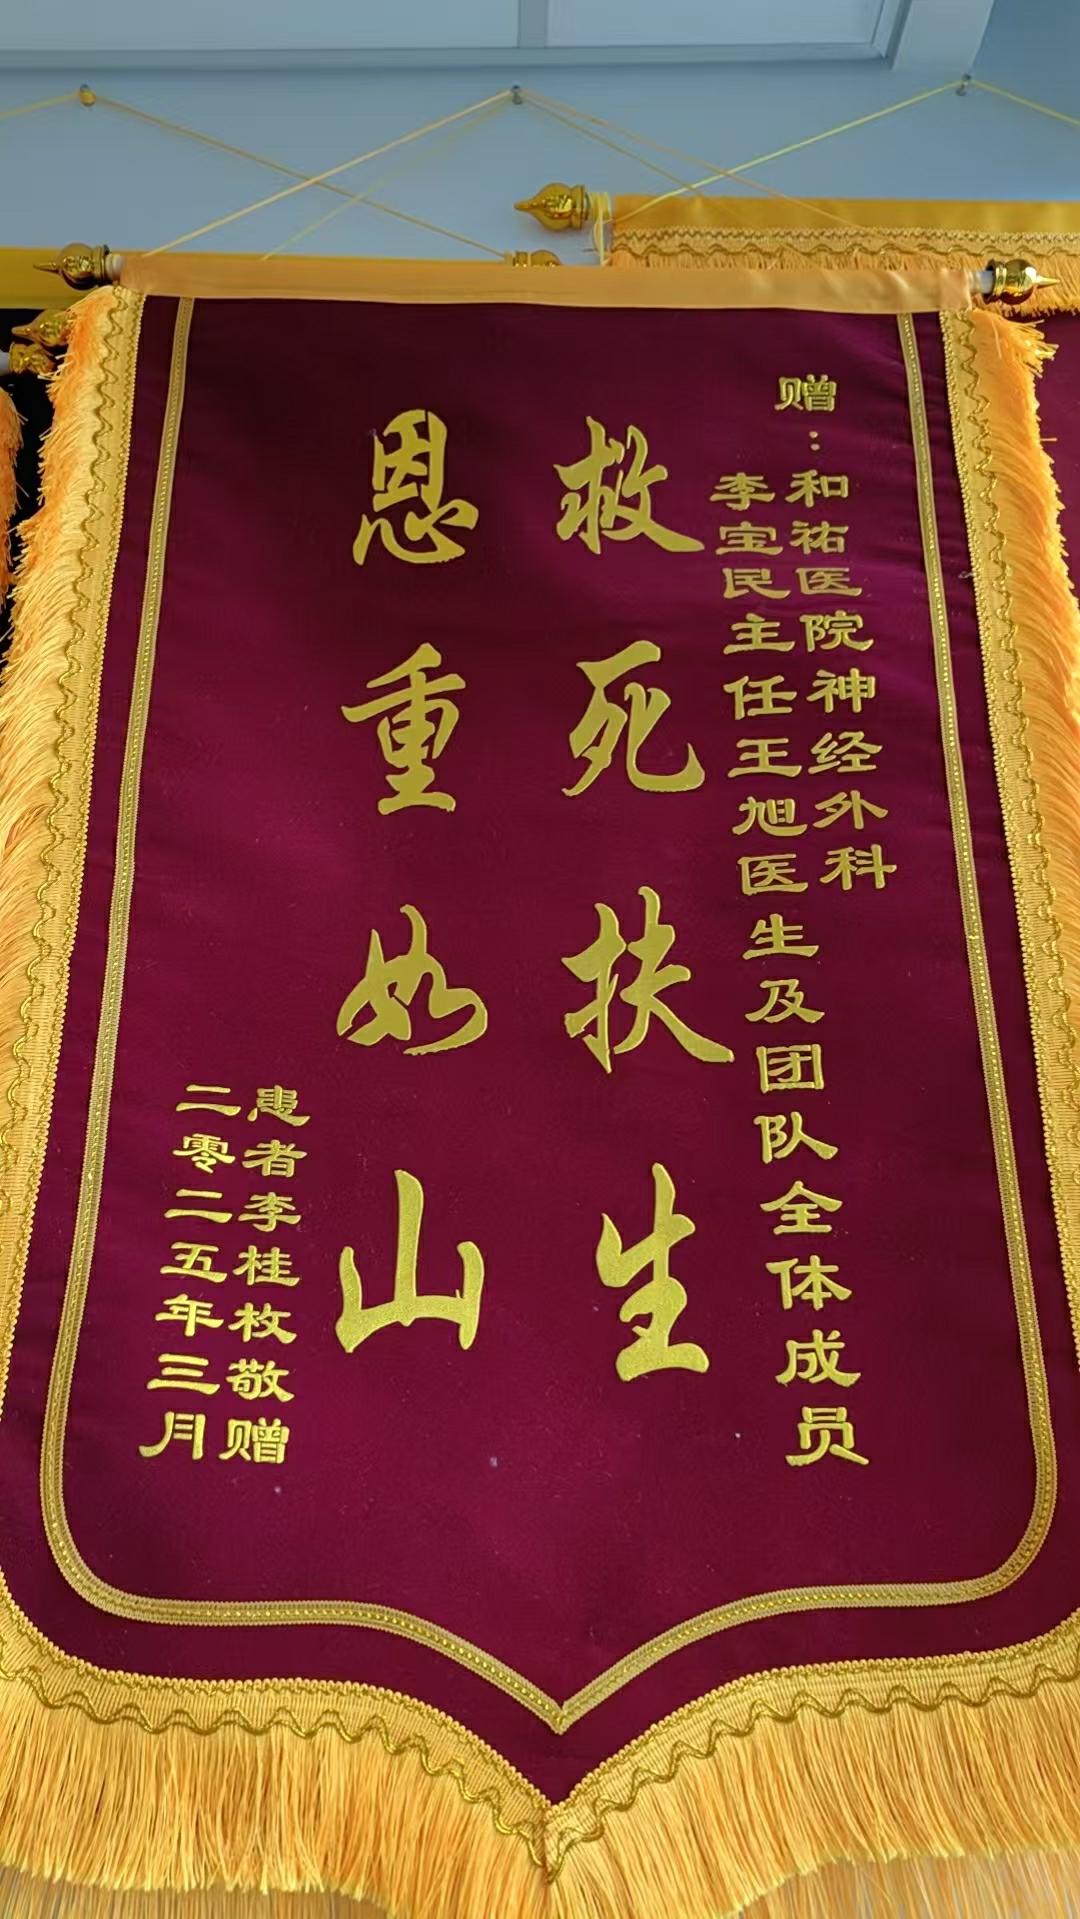 赠：和祐医院神经外科
李宝民主任王旭医生及团队全体成员
救死扶生
恩重如山
患者李桂枚敬赠
二零二五年三月